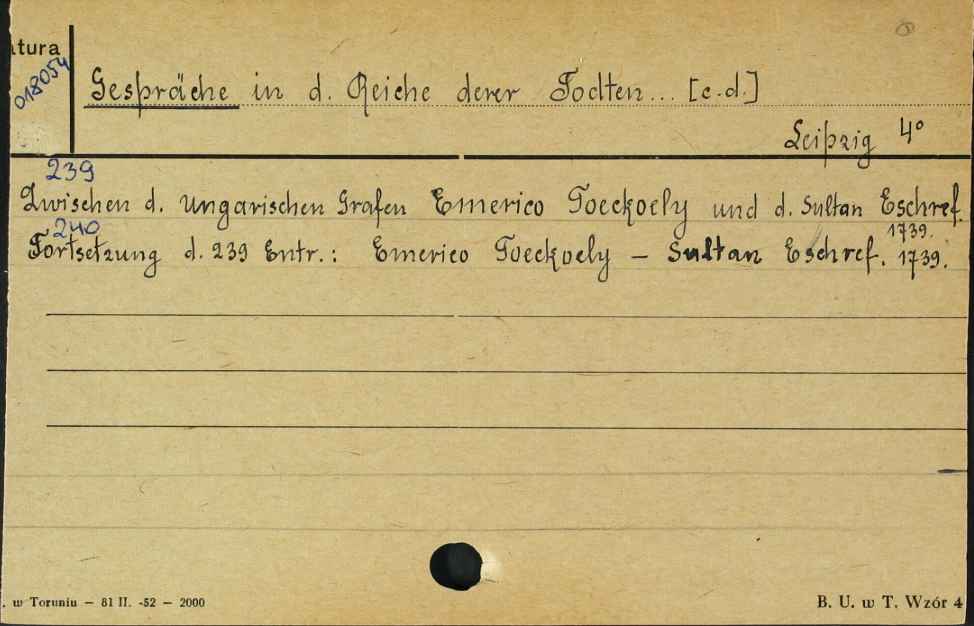 tura
018054
Gespräche in d. Reiche derer Todten... [c.d.]
Leipzig 4°
239
Zwischen d. ungarischen Grafen Emerico Toeckoely und d. Sultan Eschref.
1739.
240
Fortsetzung d. 239 Entr.: Emerico Toeckoely – Sultan Eschref. 1739.
. w Toruniu – 81 II. -52 – 2000
B. U. w T. Wzór 4